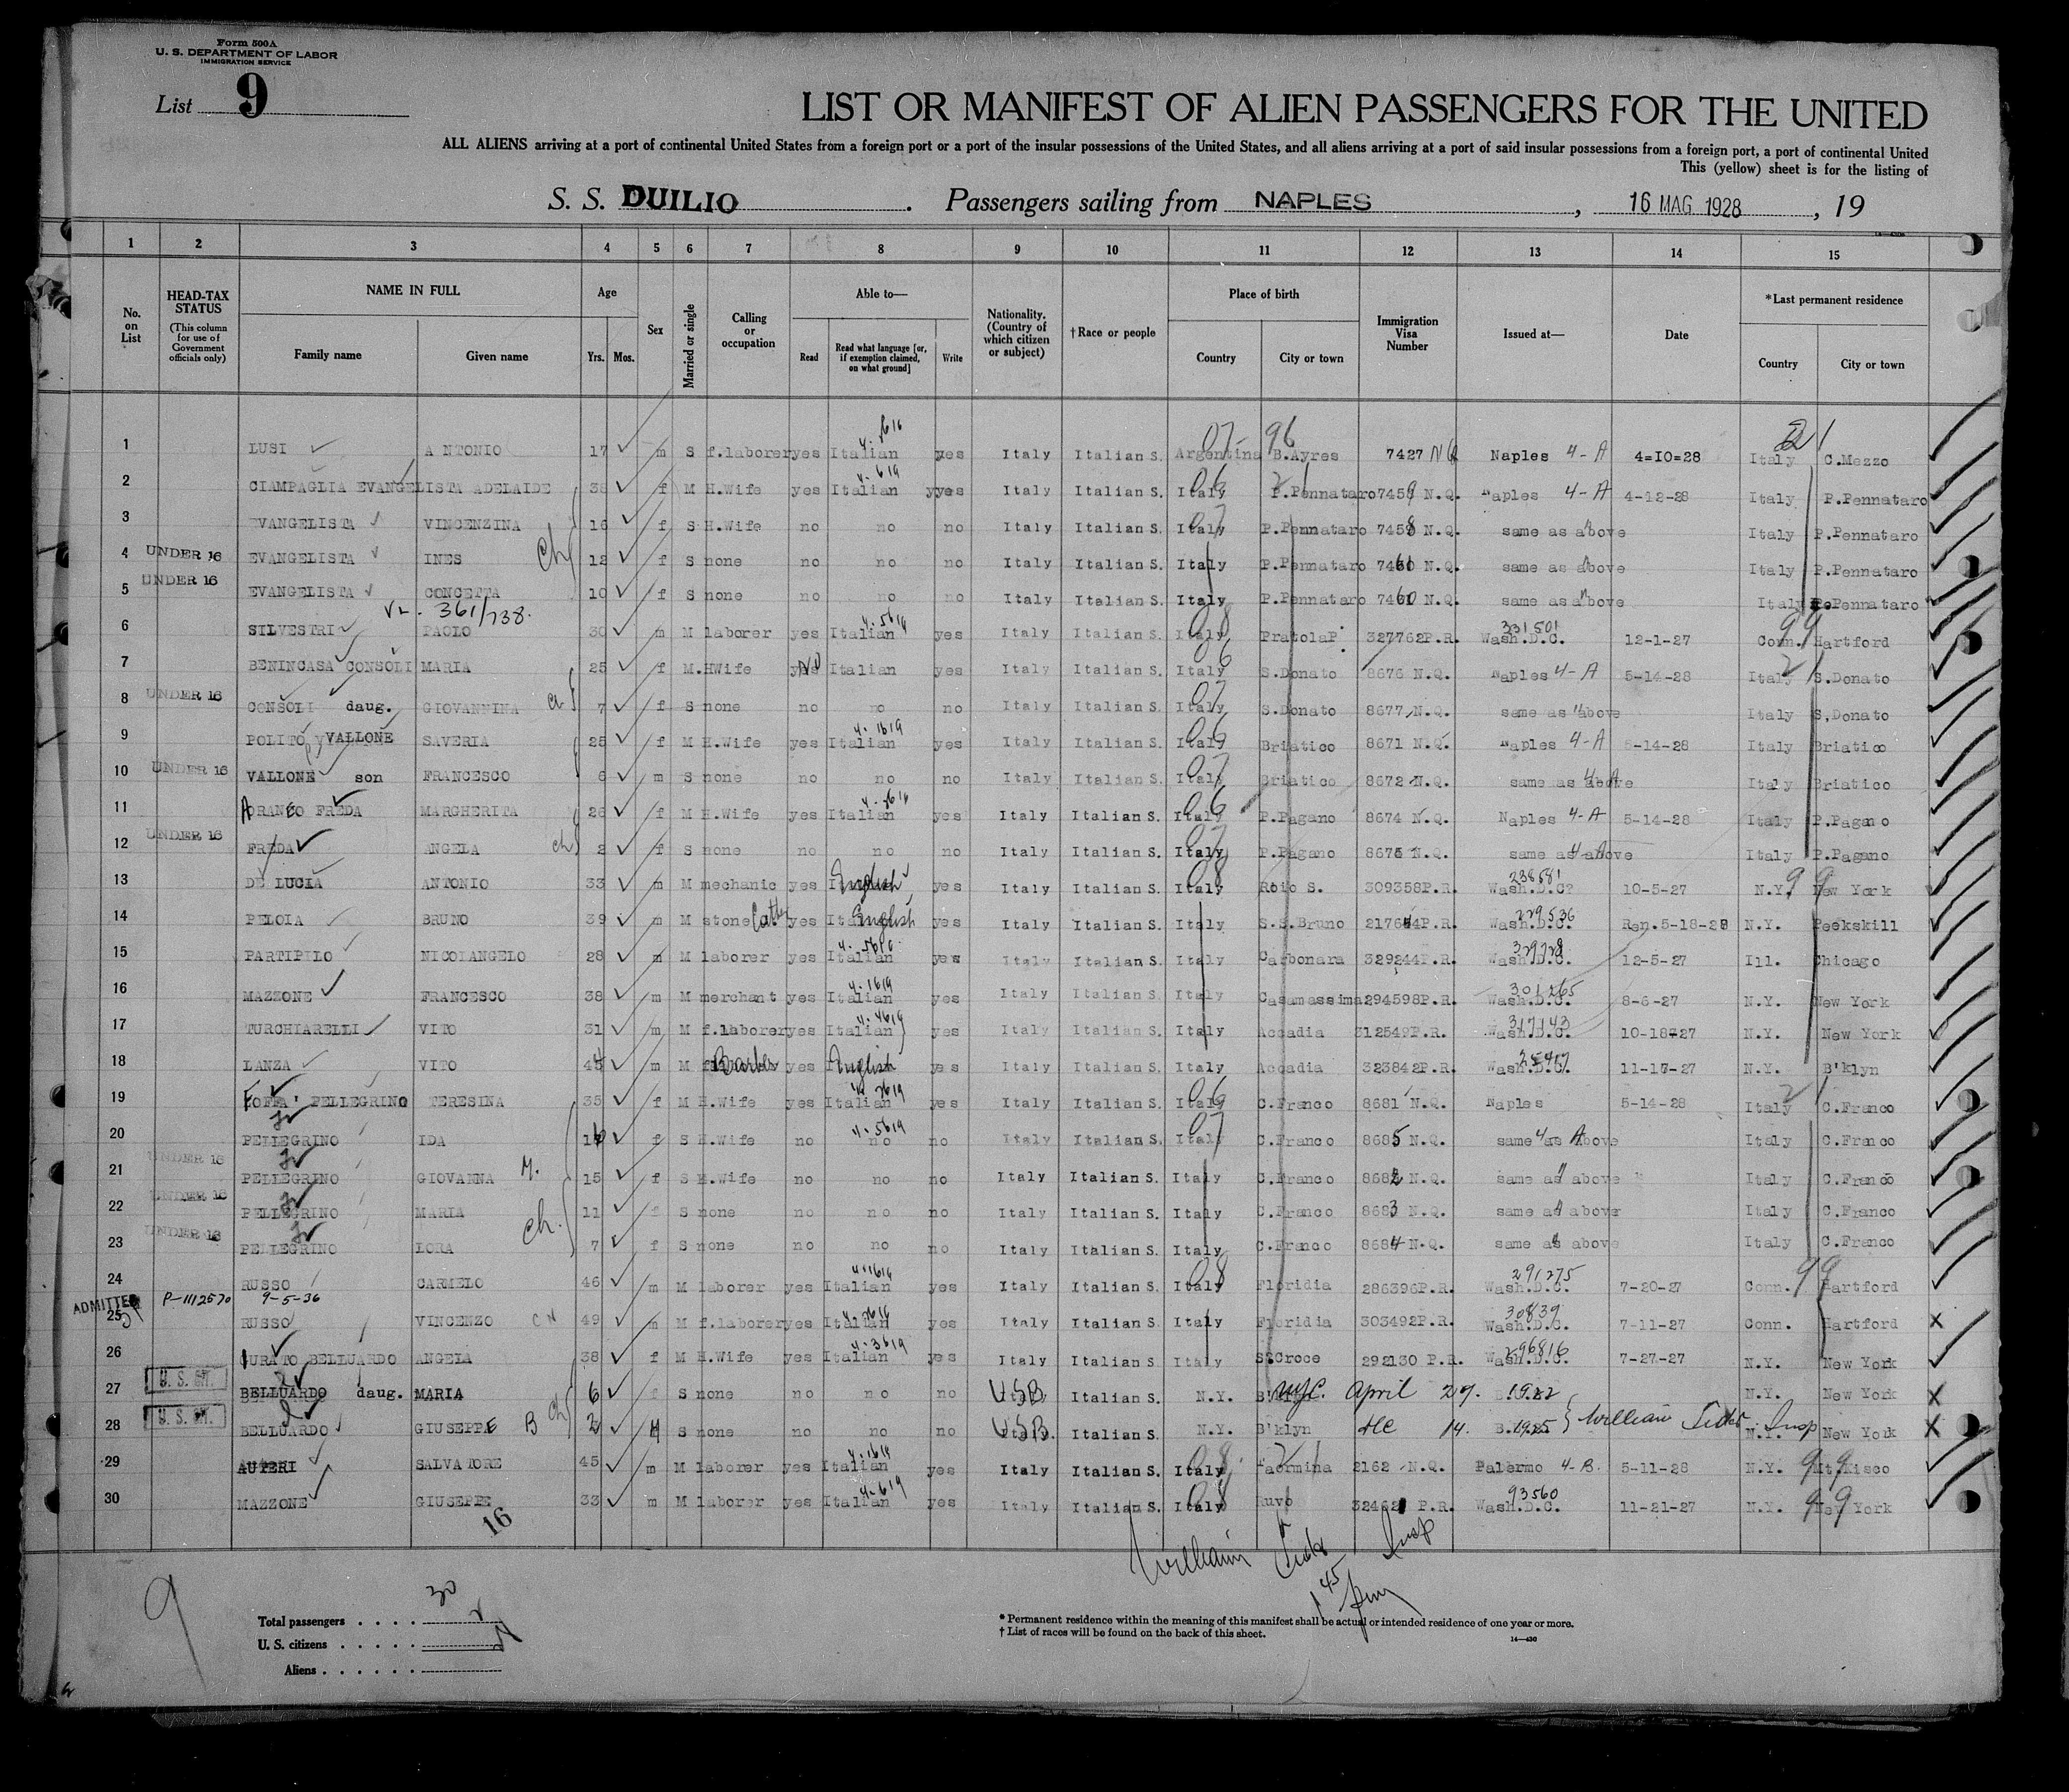 Form 500A
U. S. DEPARTMENT OF LABOR
IMMIGRATION SERVICE
List 9
LIST OR MANIFEST OF ALIEN PASSENGERS FOR THE UNITED
ALL ALIENS arriving at a port of continental United States from a foreign port or a port of the insular possessions of the United States, and all aliens arriving at a port of said insular possessions from a foreign port, a port of continental United
This (yellow) sheet is for the listing of
S. S. DUILIO. Passengers sailing from NAPLES, 16 MAG 1928, 19
1 2 3 4 5 6 7 8 9 10 11 12 13 14 15
No. on List HEAD-TAX STATUS (This column for use of Government officials only) NAME IN FULL Family name Given name Age Yrs. Mos. Sex Married or single Calling or occupation Able to— Read Read what language [or, if exemption claimed, on what ground] Write Nationality. (Country of which citizen or subject) †Race or people Place of birth Country City or town Immigration Visa Number Issued at— Date *Last permanent residence Country City or town
07- 96 21
1 LUSI ANTONIO 17 m S f.laborer yes Italian yes Italy Italian S. Argentina B.Ayres 7427 NQ Naples 4-A 4=I0=28 Italy C.Mezzo
2 CIAMPAGLIA EVANGELISTA ADELAIDE 38 f M H.Wife yes Italian yes Italy Italian S. Italy P.Pennataro 7459 N.Q. Naples 4-A 4-12-28 Italy P.Pennataro
3 EVANGELISTA VINCENZINA 16 f S H.Wife no no no Italy Italian S. Italy P.Pennataro 7458 N.Q. same as above Italy P.Pennataro
4 UNDER 16 EVANGELISTA INES ch 12 f S none no no no Italy Italian S. Italy P.Pennataro 7461 N.Q. same as above Italy P.Pennataro
5 UNDER 16 EVANGELISTA CONCETTA 10 f S none no no no Italy Italian S. Italy P.Pennataro 7460 N.Q. same as above Italy P.Pennataro
361/738.
6 SILVESTRI PAOLO 30 m M laborer yes Italian yes Italy Italian S. Italy PratolaP. 327762P.R. 331501 Wash.D.C. 12-1-27 Conn. Hartford
7 BENINCASA CONSOLI MARIA 25 f M.HWife yes NO Italian yes Italy Italian S. Italy S.Donato 8676 N.Q. Naples 4-A 5-14-28 Italy S.Donato
8 UNDER 16 CONSOLI daug. GIOVANNINA ch 7 f S none no no no Italy Italian S. Italy S.Donato 8677 N.Q. same as above Italy S.Donato
9 POLITO VALLONE SAVERIA 25 f M H.Wife yes Italian yes Italy Italian S. Italy Briatico 8671 N.Q. Naples 4-A 5-14-28 Italy Briatico
10 UNDER 16 VALLONE son FRANCESCO 6 m S none no no no Italy Italian S. Italy Briatico 8672 N.Q. same as above Italy Briatico
11 FREDA MARGHERITA 26 f M H.Wife yes Italian yes Italy Italian S. Italy P.Pagano 8674 N.Q. Naples 4-A 5-14-28 Italy P.Pagano
12 UNDER 16 FREDA ANGELA ch 2 f S none no no no Italy Italian S. Italy P.Pagano 8675 N.Q. same as above Italy P.Pagano
13 DE LUCIA ANTONIO 33 m M mechanic yes English yes Italy Italian S. Italy Roio S. 309358P.R. 238581 Wash.D.C. 10-5-27 N.Y. New York
14 PELOIA BRUNO 39 m M stone yes English yes Italy Italian S. Italy S.S.Bruno 217644P.R. 229536 Wash.D.C. Ren.5-18-28 N.Y. Peekskill
15 PARTIPILO NICOLANGELO 28 m M laborer yes Italian yes Italy Italian S. Italy Carbonara 329244P.R. Wash.D.C. 12-5-27 Ill. Chicago
16 MAZZONE FRANCESCO 38 m M merchant yes Italian yes Italy Italian S. Italy Casamassima 294598P.R. Wash.D.C. 8-6-27 N.Y. New York
17 TURCHIARELLI VITO 31 m M f.laborer yes Italian yes Italy Italian S. Italy Accadia 312549P.R. 317143 Wash.D.C. 10-18-27 N.Y. New York
18 LANZA VITO 45 m M Barber yes English yes Italy Italian S. Italy Accadia 323842P.R. Wash.D.C. 11-17-27 N.Y. B'klyn
19 FOFFA' PELLEGRINO TERESINA 35 f M H.Wife yes Italian yes Italy Italian S. Italy C.Franco 8681 N.Q. Naples 5-14-28 Italy C.Franco
20 PELLEGRINO IDA 16 f S H.Wife no no no Italy Italian S. Italy C.Franco 8685 N.Q. same as above Italy C.Franco
21 UNDER 16 PELLEGRINO GIOVANNA M. 15 f S H.Wife no no no Italy Italian S. Italy C.Franco 8682 N.Q. same as above Italy C.Franco
22 UNDER 16 PELLEGRINO MARIA 11 f S none no no no Italy Italian S. Italy C.Franco 8683 N.Q. same as above Italy C.Franco
23 UNDER 16 PELLEGRINO LORA ch. 7 f S none no no no Italy Italian S. Italy C.Franco 8684 N.Q. same as above Italy C.Franco
24 RUSSO CARMELO 46 m M laborer yes Italian yes Italy Italian S. Italy Floridia 286396P.R. 291275 Wash.D.C. 7-20-27 Conn. Hartford
ADMITTED P-1112570 9-5-36
25 RUSSO VINCENZO 49 m M f.laborer yes Italian yes Italy Italian S. Italy Floridia 303492P.R. 30839 Wash.D.C. 7-11-27 Conn. Hartford X
26 CURATO BELLUARDO ANGELA 38 f M H.Wife yes Italian yes Italy Italian S. Italy S.Croce 292130 P.R. 296816 Wash.D.C. 7-27-27 N.Y. New York
27 BELLUARDO daug. MARIA ch 6 f S none no no no USB Italian S. N.Y. NYC. April 29. 1922 N.Y. New York X
28 BELLUARDO GIUSEPPE B S none no no no USB Italian S. N.Y. B'klyn 14. 1925 William Insp N.Y. New York X
29 AUTERI SALVATORE 45 m M laborer yes Italian yes Italy Italian S. Italy Taormina 2162 N.Q. Palermo 4-B. 5-11-28 N.Y. Mt.Kisco
30 MAZZONE GIUSEPPE 33 m M laborer yes Italian yes Italy Italian S. Italy Ruvo P.R. 93560 Wash.D.C. 11-21-27 N.Y. New York
16
William Insp
9
Total passengers . . . . 30
U. S. citizens . . . . .
Aliens . . . . . .
* Permanent residence within the meaning of this manifest shall be actual or intended residence of one year or more.
† List of races will be found on the back of this sheet.
14—430